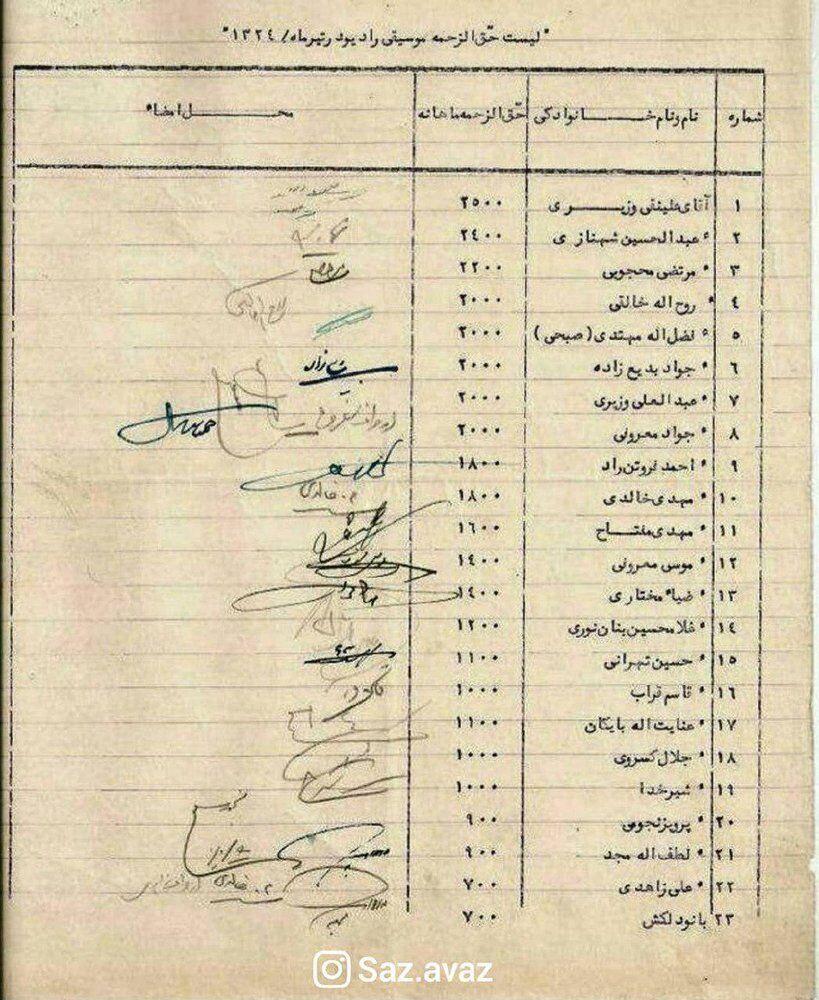 "لیست حقّ الزحمه موسیقی رادیو در تیرماه/ ۱۳۲٤"
شماره نام و نام خانوادگی حقّ الزحمه ماهانه محل امضاء
۱ آقای علینقی وزیری ۲۵۰۰
۲ " عبدالحسین شهنازی ۲٤۰۰
۳ " مرتضی محجوبی ۲۲۰۰
٤ " روح اله خالقی ۲۰۰۰
۵ " فضل اله مهتدی (صبحی) ۲۰۰۰
٦ " جواد بدیع زاده ۲۰۰۰
۷ " عبدالعلی وزیری ۲۰۰۰
۸ " جواد معروفی ۲۰۰۰
۹ " احمد فروتن راد ۱۸۰۰
۱۰ " مهدی خالدی ۱۸۰۰
م. خالدی
۱۱ " مهدی مفتاح ۱٦۰۰
۱۲ " موسی معروفی ۱٤۰۰
۱۳ " ضیاء مختاری ۱٤۰۰
۱٤ " غلامحسین بنان نوری ۱۲۰۰
۱۵ " حسین تهرانی ۱۱۰۰
۱٦ " قاسم قراب ۱۰۰۰
۱۷ " عنایت اله بایکان ۱۱۰۰
۱۸ " جلال کسروی ۱۰۰۰
۱۹ " شیرخدا ۱۰۰۰
۲۰ " پرویز نجومی ۹۰۰
۲۱ " لطف اله مجد ۹۰۰
۲۲ " علی زاهدی ۷۰۰
م. خالدی
۲۳ بانو دلکش ۷۰۰
Saz.avaz